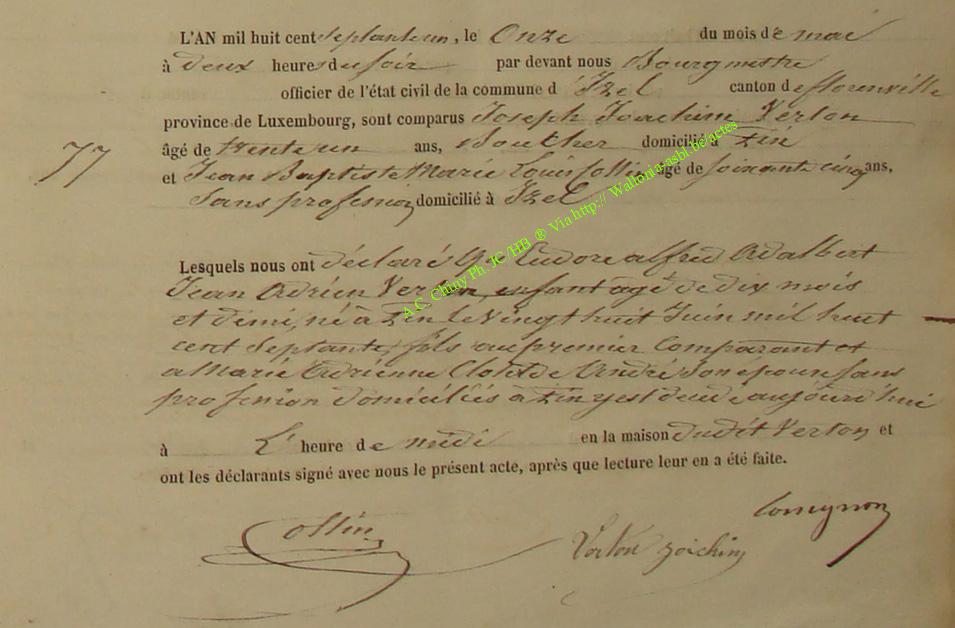 L'AN mil huit cent septante un, le Onze du mois de mai
à deux heures du soir par devant nous Bourgmestre
officier de l'état civil de la commune d'Izel canton de florenville
province de Luxembourg, sont comparus Joseph Joachim Verton
âgé de trente un ans, Boucher domicilié à
77
et Jean Baptiste Marie Louis Collin âgé de soixante cinq ans,
Sans profession domicilié à Izel
Lesquels nous ont déclaré Que alfred Adalbert
Jean Adrien Verton, enfant agé de dix mois
et demi, né à le vingt huit Juin mil huit
cent Septante, fils au premier Comparant et
a Marie Adrienne Clotilde André Son epouse sans
profession domiciliés à y est décédé aujourd'hui
à L' heure de midi en la maison dudit Verton et
ont les déclarants signé avec nous le présent acte, après que lecture leur en a été faite.
Collin
Verton
A.C. Chiny Ph. JC /HB ® Via http:// Wallonia-asbl.be actes